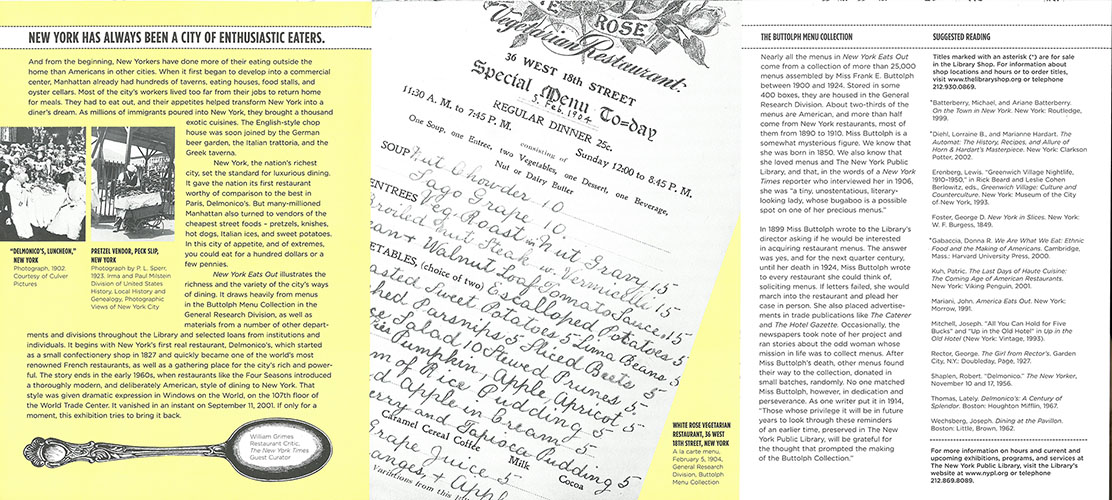 NEW YORK HAS ALWAYS BEEN A CITY OF ENTHUSIASTIC EATERS.
And from the beginning, New Yorkers have done more of their eating outside the
home than Americans in other cities. When it first began to develop into a commercial
center, Manhattan already had hundreds of taverns, eating houses, food stalls, and
oyster cellars. Most of the city's workers lived too far from their jobs to return home
for meals. They had to eat out, and their appetites helped transform New York into a
diner's dream. As millions of immigrants poured into New York, they brought a thousand
exotic cuisines. The English-style chop
house was soon joined by the German
beer garden, the Italian trattoria, and the
Greek taverna.
New York, the nation's richest
city, set the standard for luxurious dining.
It gave the nation its first restaurant
worthy of comparison to the best in
Paris, Delmonico's. But many-millioned
Manhattan also turned to vendors of the
cheapest street foods – pretzels, knishes,
hot dogs, Italian ices, and sweet potatoes.
In this city of appetite, and of extremes,
you could eat for a hundred dollars or a
few pennies.
New York Eats Out illustrates the
richness and variety of the city's ways
of dining. It draws heavily from menus
in the Buttolph Menu Collection in the
General Research Division, as well as
materials from a number of other depart-
ments and divisions throughout the Library and selected loans from institutions and
individuals. It begins with New York's first real restaurant, Delmonico's, which started
as a small confectionery shop in 1827 and quickly became one of the world's most
renowned French restaurants, as well as a gathering place for the city's rich and power-
ful. The story ends in the early 1960s, when restaurants like the Four Seasons introduced
a thoroughly modern, and deliberately American, style of dining to New York. That
style was given dramatic expression in Windows on the World, on the 107th floor of
the World Trade Center. It vanished in an instant on September 11, 2001. If only for a
moment, this exhibition tries to bring it back.
"DELMONICO'S, LUNCHEON,"
NEW YORK
Photograph, 1902.
Courtesy of Culver
Pictures
PRETZEL VENDOR, PECK SLIP,
NEW YORK
Photograph by P. L. Sperr,
1923. Irma and Paul Milstein
Division of United States
History, Local History and
Genealogy, Photographic
Views of New York City
William Grimes
Restaurant Critic,
The New York Times
Guest Curator
ROSE
Vegetarian Restaurant:
36 WEST 18th STREET
Special Menu To=day
5. Feb. 1904
REGULAR DINNER 25c.
11:30 A. M. to 7:45 P. M.
Sunday 12:00 to 8:45 P. M.
consisting of
One Soup, one Entree, two Vegetables, one Dessert, one Beverage.
Nut or Dairy Butter
SOUP Nut Chowder 10
Sago Grape 10
ENTREES Veg. Roast in Nut Gravy 15
Broiled Nut Steak w Vermicilli 15
an + Walnut Loaf Tomato Sauce 15
ETABLES, (choice of two) Escalloped Potatoes 5
asted Sweet Potatoes 5 Lima Beans 5
hed Parsnips 5 Sliced Beets 5
e Salad 10 Stewed Prunes 5
ies Pumpkin, Apple, Apricot 5
m of Rice Pudding 5
d apple in Cream 5
erry and Tapioca Pudding 5
Caramel Cereal Coffee Milk Cocoa
Grape Juice 5
anges + Appl
Variations from this
WHITE ROSE VEGETARIAN
RESTAURANT, 36 WEST
18TH STREET, NEW YORK
A la carte menu,
February 5, 1904.
General Research
Division, Buttolph
Menu Collection
THE BUTTOLPH MENU COLLECTION
Nearly all the menus in New York Eats Out
come from a collection of more than 25,000
menus assembled by Miss Frank E. Buttolph
between 1900 and 1924. Stored in some
400 boxes, they are housed in the General
Research Division. About two-thirds of the
menus are American, and more than half
come from New York restaurants, most of
them from 1890 to 1910. Miss Buttolph is a
somewhat mysterious figure. We know that
she was born in 1850. We also know that
she loved menus and The New York Public
Library, and that, in the words of a New York
Times reporter who interviewed her in 1906,
she was "a tiny, unostentatious, literary-
looking lady, whose bugaboo is a possible
spot on one of her precious menus."
In 1899 Miss Buttolph wrote to the Library's
director asking if he would be interested
in acquiring restaurant menus. The answer
was yes, and for the next quarter century,
until her death in 1924, Miss Buttolph wrote
to every restaurant she could think of,
soliciting menus. If letters failed, she would
march into the restaurant and plead her
case in person. She also placed advertise-
ments in trade publications like The Caterer
and The Hotel Gazette. Occasionally, the
newspapers took note of her project and
ran stories about the odd woman whose
mission in life was to collect menus. After
Miss Buttolph's death, other menus found
their way to the collection, donated in
small batches, randomly. No one matched
Miss Buttolph, however, in dedication and
perseverance. As one writer put it in 1914,
"Those whose privilege it will be in future
years to look through these reminders
of an earlier time, preserved in The New
York Public Library, will be grateful for
the thought that prompted the making
of the Buttolph Collection."
SUGGESTED READING
Titles marked with an asterisk (*) are for sale
in the Library Shop. For information about
shop locations and hours or to order titles,
visit www.thelibraryshop.org or telephone
212.930.0869.
*Batterberry, Michael, and Ariane Batterberry.
On the Town in New York. New York: Routledge,
1999.
*Diehl, Lorraine B., and Marianne Hardart. The
Automat: The History, Recipes, and Allure of
Horn & Hardart's Masterpiece. New York: Clarkson
Potter, 2002.
Erenberg, Lewis. "Greenwich Village Nightlife,
1910–1950," in Rick Beard and Leslie Cohen
Berlowitz, eds., Greenwich Village: Culture and
Counterculture. New York: Museum of the City
of New York, 1993.
Foster, George G. New York in Slices. New York:
W. F. Burgess, 1849.
*Gabaccia, Donna R. We Are What We Eat: Ethnic
Food and the Making of Americans. Cambridge,
Mass.: Harvard University Press, 2000.
Kuh, Patric. The Last Days of Haute Cuisine:
The Coming Age of American Restaurants.
New York: Viking Penguin, 2001.
Mariani, John. America Eats Out. New York:
Morrow, 1991.
Mitchell, Joseph. "All You Can Hold for Five
Bucks" and "Up in the Old Hotel" in Up in the
Old Hotel (New York: Vintage, 1993).
Rector, George. The Girl from Rector's. Garden
City, N.Y.: Doubleday, Page, 1927.
Shaplen, Robert. "Delmonico." The New Yorker,
November 10 and 17, 1956.
Thomas, Lately. Delmonico's: A Century of
Splendor. Boston: Houghton Mifflin, 1967.
Wechsberg, Joseph. Dining at the Pavillon.
Boston: Little, Brown, 1962.
For more information on hours and current and
upcoming exhibitions, programs, and services at
The New York Public Library, visit the Library's
website at www.nypl.org or telephone
212.869.8089.